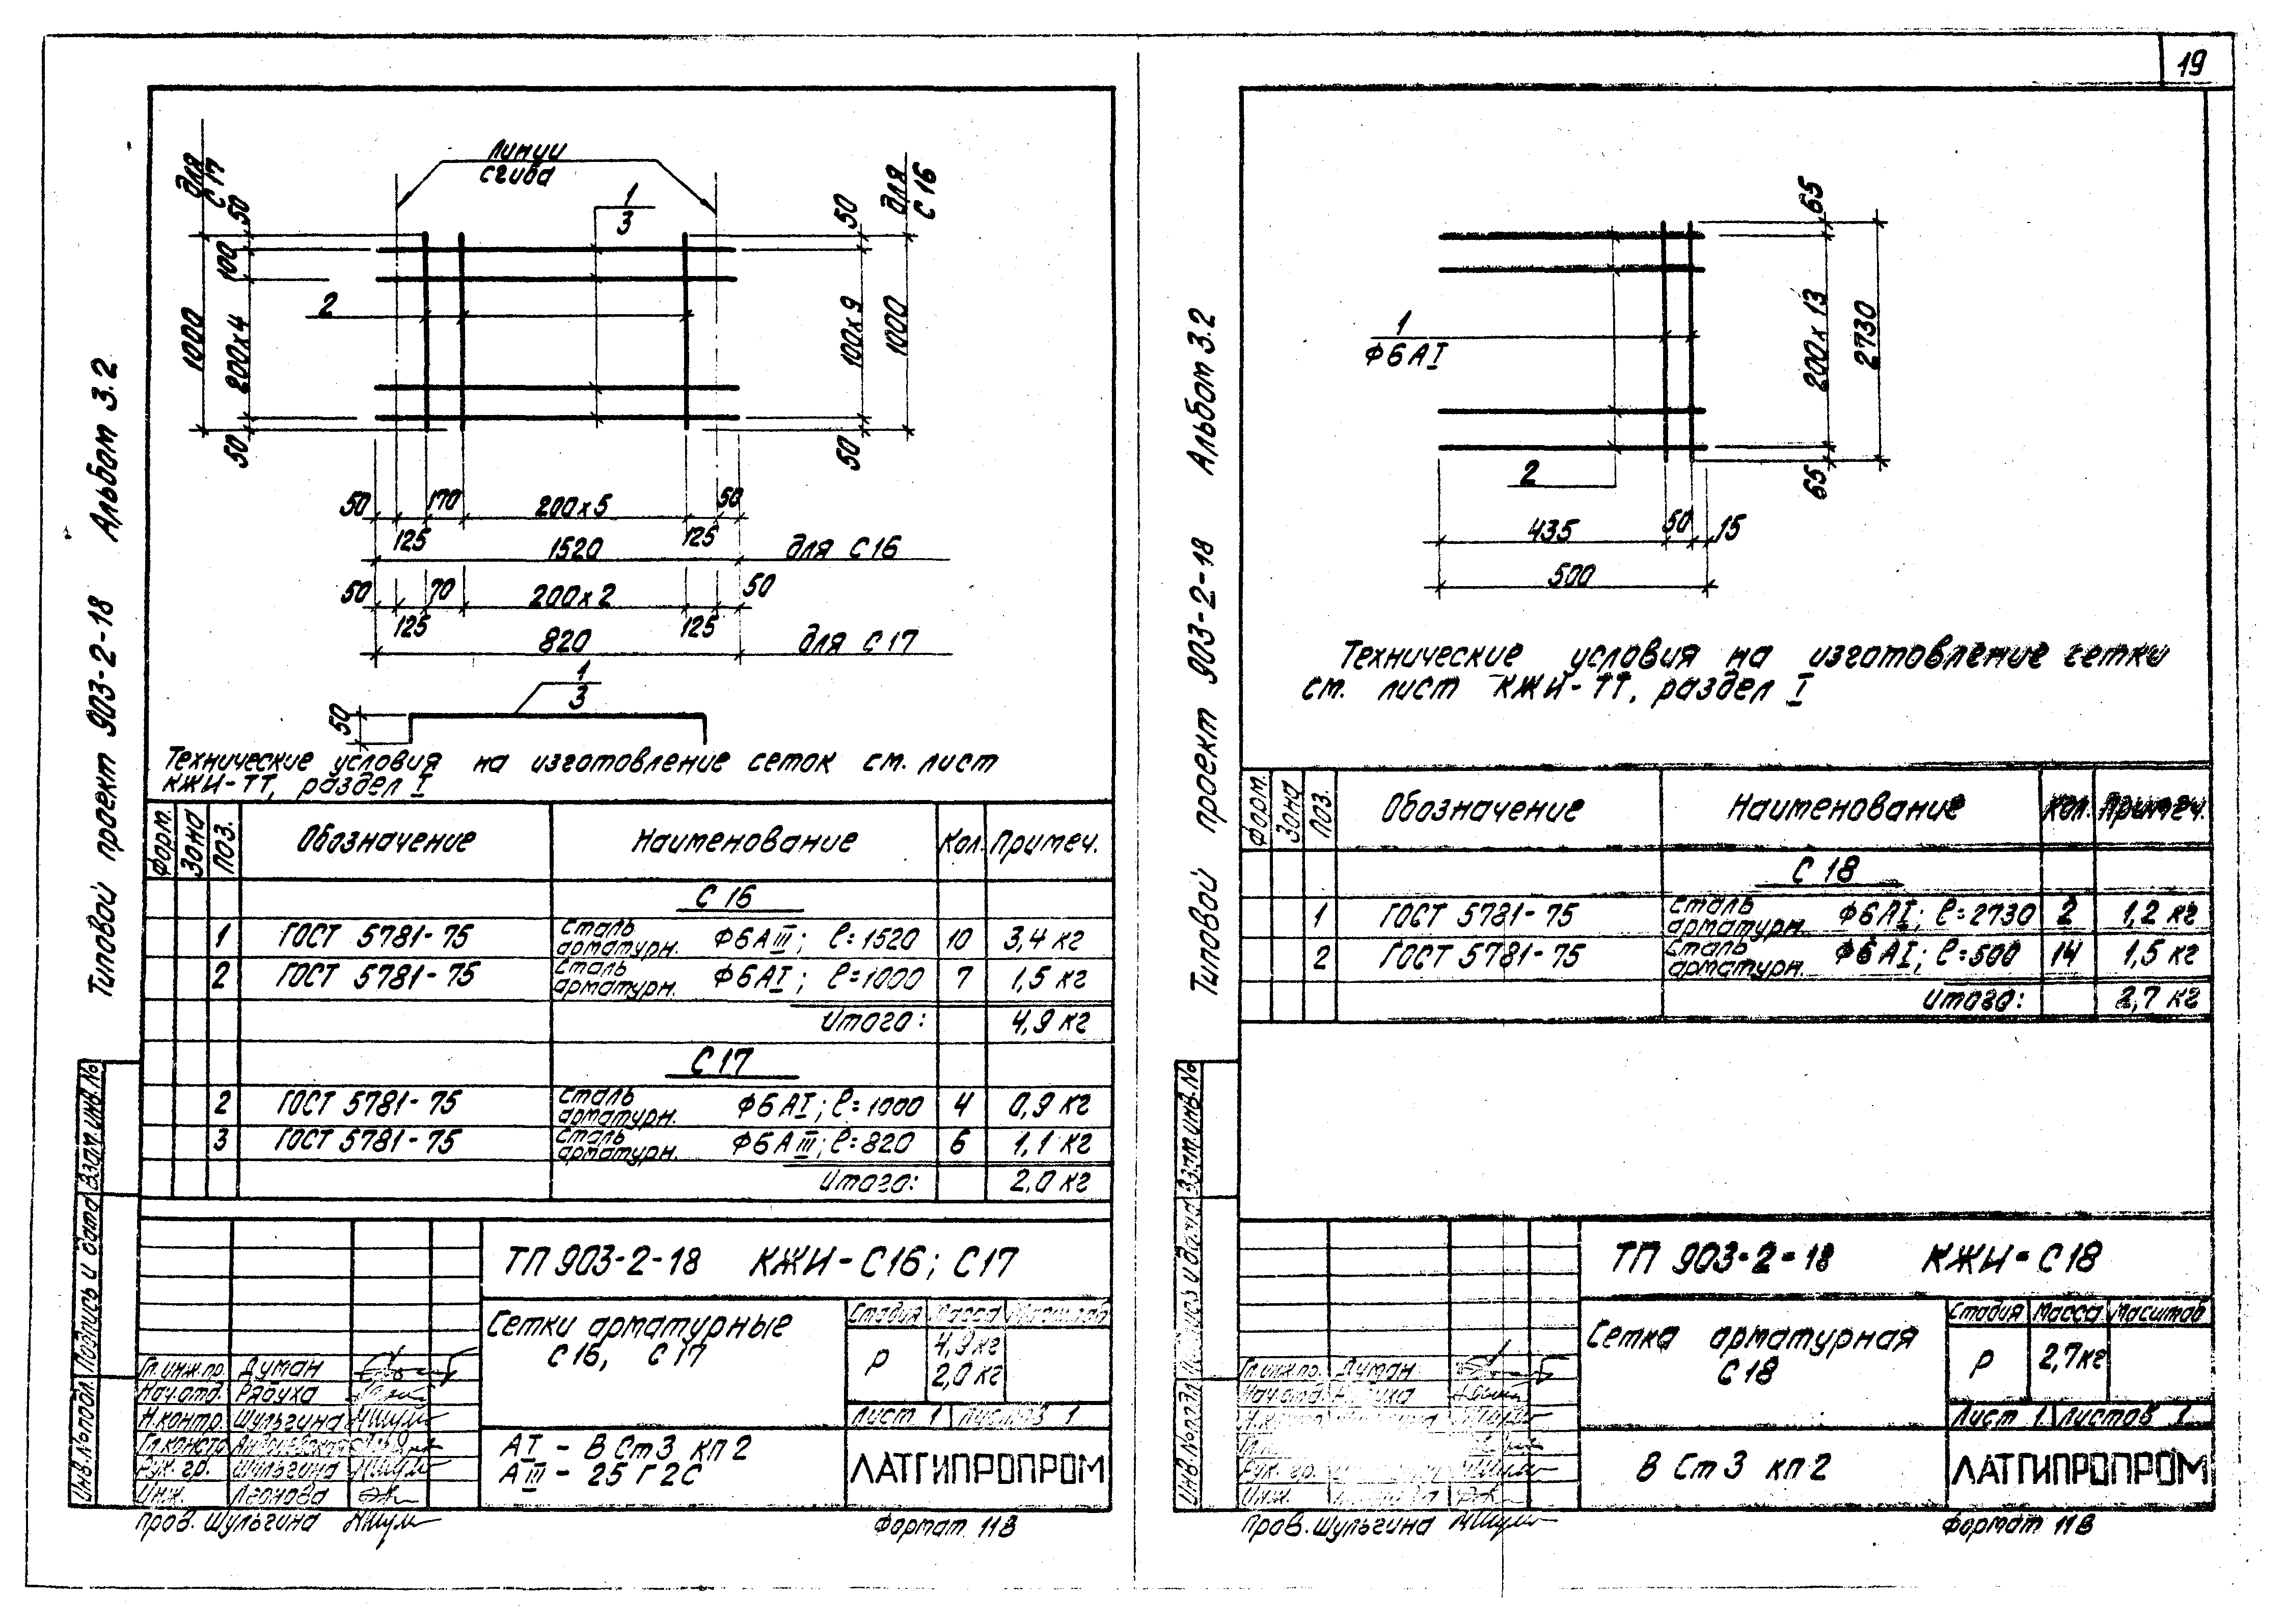 19
Типовой проект 903-2-18 Альбом 3.2
Линии
сгиба
для
С17
для
С16
1
3
2
50
100
200х4
50
1000
50
100х9
50
1000
50 170 200х5 50
125 125
1520 для С16
50 70 200х2 50
125 125
820 для С17
1
3
50
Технические условия на изготовление сеток см. лист
КЖИ-ТТ, раздел I
Форм. Зона Поз. Обозначение Наименование Кол. Примеч.
С 16
1 ГОСТ 5781-75 Сталь арматурн. Ф6АIII; ℓ=1520 10 3,4 кг
2 ГОСТ 5781-75 Сталь арматурн. Ф6АI; ℓ=1000 7 1,5 кг
Итого: 4,9 кг
С 17
2 ГОСТ 5781-75 Сталь арматурн. Ф6АI; ℓ=1000 4 0,9 кг
3 ГОСТ 5781-75 Сталь арматурн. Ф6АIII; ℓ=820 6 1,1 кг
Итого: 2,0 кг
Инв.№подл. Подпись и дата Взам.инв.№
ТП 903-2-18 КЖИ-С16; С17
Сетки арматурные
С16, С17
Стадия Масса Масштаб
Р 4,9кг
2,0 кг
Лист 1 Листов 1
Гл.инж.пр. Думан
Нач.отд. Рябуха
Н.контр. Шульгина
Гл.констр.
Рук. гр. Шульгина
Инж. Леонова
АI - В Ст3 кп2
АIII - 25Г2С
ЛАТГИПРОПРОМ
Пров. Шульгина
Формат 11В
Типовой проект 903-2-18 Альбом 3.2
1
Ф6АI
2
65
200х13
65
2730
435 50 15
500
Технические условия на изготовление сетки
см. лист КЖИ-ТТ, раздел I
Форм. Зона Поз. Обозначение Наименование Кол. Примеч.
С 18
1 ГОСТ 5781-75 Сталь арматурн. Ф6АI; ℓ=2730 2 1,2 кг
2 ГОСТ 5781-75 Сталь арматурн. Ф6АI; ℓ=500 14 1,5 кг
Итого: 2,7 кг
Инв.№подл.
ТП 903-2-18 КЖИ-С18
Сетка арматурная
С18
Стадия Масса Масштаб
Р 2,7кг
Лист 1 Листов 1
Гл.инж.пр. Думан
Нач.отд.
Рук. гр.
Инж.
В Ст3 кп2
ЛАТГИПРОПРОМ
Пров. Шульгина
Формат 11В